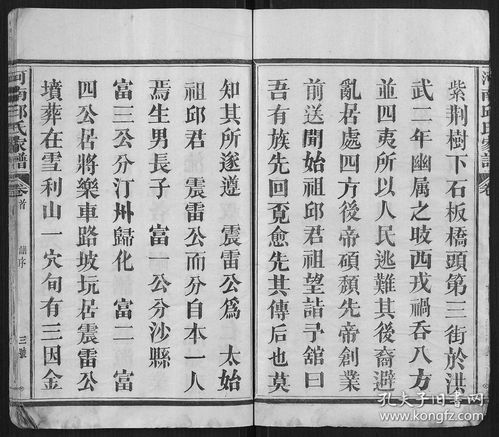 紫荆樹下石板橋頭第三街於洪
武二年幽属之岐西戎禍吞八方
並四夷所以人民逃難其後裔避
亂居處四方後帝碩頪先帝創業
前送開始祖邱君祖望諸予舘曰
吾有族先回覔愈先其傳后也莫
知其所遂遵 震雷公爲 太始
祖邱君 震雷公而分自本一人
焉生男長子 富一公分沙縣
富三公分汀州歸化 富二 富
四公居將樂車路坡坑居震雷公
墳葬在雪利山一穴旬有三因金
河南邱氏家譜 卷首 譜序 三號
孔夫子旧书网
www.kongfz.com